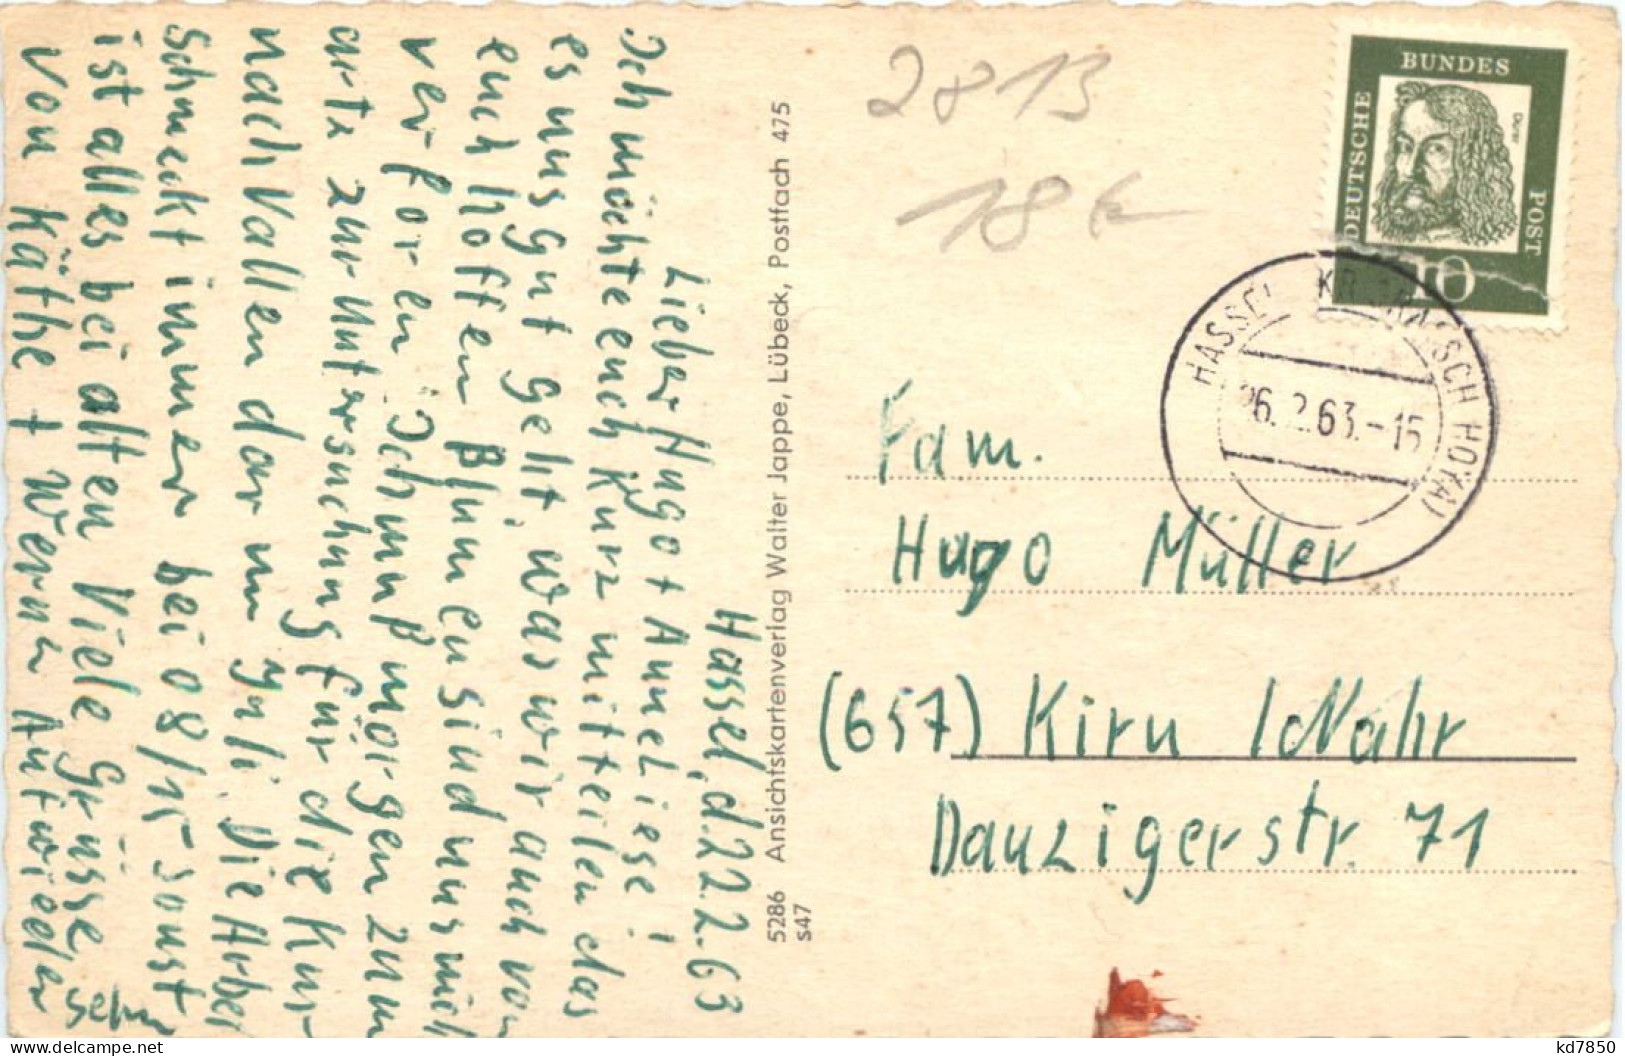 Hassel, d. 22.2.63
Lieber Hugo + Anneliese!
Ich möchte euch Kurz mitteilen das
es uns gut geht, was wir auch von
euch hoffen Blumen sind uns nich
verforen. Ich muß morgen zum
arte zur untersuchung für die Kur
nach Vallendar um Juli. Die Arbei
schmeckt immer bei 08/15 sonst
ist alles bei alten Viele Grüsse
von Käthe + Werner Aufwieder
sehn
5286 Ansichtskartenverlag Walter Jappe, Lübeck, Postfach 475
s47
2813
18 €
DEUTSCHE BUNDES POST
Dürer
10
HASSEL KR. GRAFSCH HOYA)
26.2.63.-15
a
Fam.
Hugo Müller
(657) Kirn / Nahr
Danzigerstr. 71
kd7850